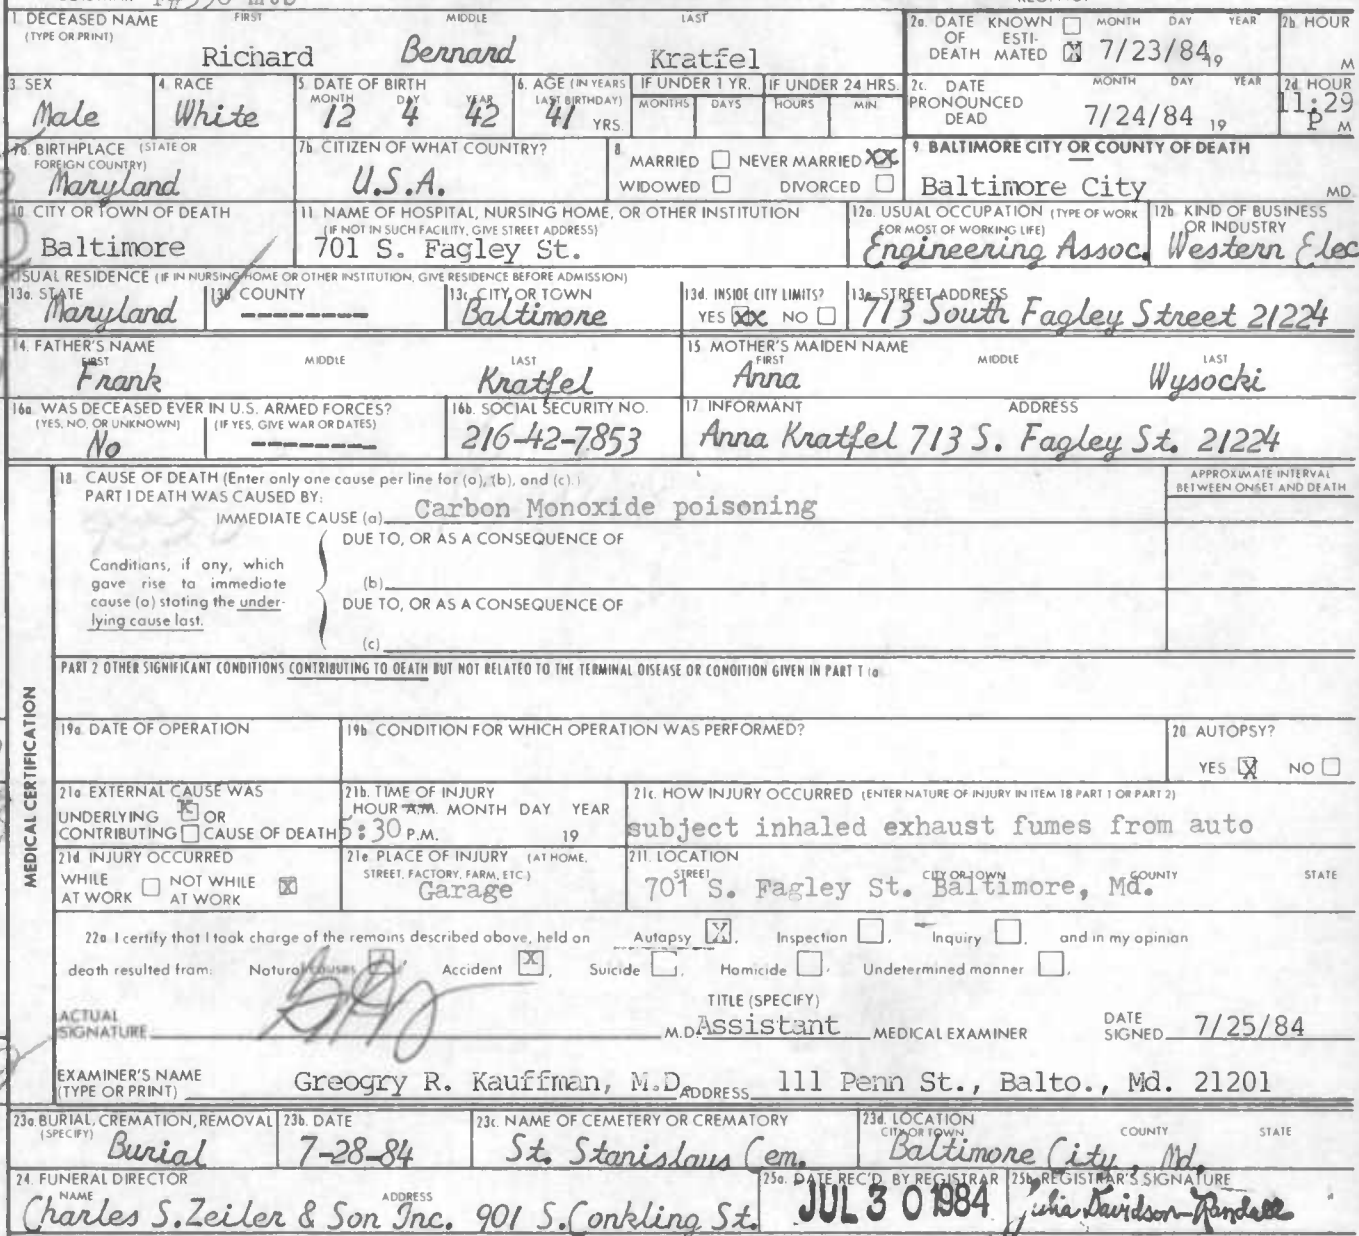 1 DECEASED NAME FIRST MIDDLE LAST
(TYPE OR PRINT)
Richard Bernard Kratfel
2a. DATE OF DEATH KNOWN ☐ ESTIMATED ☒ MONTH DAY YEAR
7/23/84 19
2b HOUR
M
3 SEX
Male
4 RACE
White
5 DATE OF BIRTH
MONTH DAY YEAR
12 4 42
6. AGE (IN YEARS LAST BIRTHDAY)
41 YRS.
IF UNDER 1 YR.
MONTHS DAYS
IF UNDER 24 HRS.
HOURS MIN.
2c. DATE PRONOUNCED DEAD MONTH DAY YEAR
7/24/84 19
2d HOUR
11:29 P M
7a BIRTHPLACE (STATE OR FOREIGN COUNTRY)
Maryland
7b CITIZEN OF WHAT COUNTRY?
U.S.A.
8
MARRIED ☐ NEVER MARRIED XX
WIDOWED ☐ DIVORCED ☐
9 BALTIMORE CITY OR COUNTY OF DEATH
Baltimore City MD.
10 CITY OR TOWN OF DEATH
Baltimore
11 NAME OF HOSPITAL, NURSING HOME, OR OTHER INSTITUTION
(IF NOT IN SUCH FACILITY, GIVE STREET ADDRESS)
701 S. Fagley St.
12a. USUAL OCCUPATION (TYPE OF WORK FOR MOST OF WORKING LIFE)
Engineering Assoc.
12b KIND OF BUSINESS OR INDUSTRY
Western Elec
USUAL RESIDENCE (IF IN NURSING HOME OR OTHER INSTITUTION, GIVE RESIDENCE BEFORE ADMISSION)
13a. STATE
Maryland
13b COUNTY
--------
13c CITY OR TOWN
Baltimore
13d. INSIDE CITY LIMITS?
YES XX NO ☐
13e. STREET ADDRESS
713 South Fagley Street 21224
14. FATHER'S NAME
FIRST MIDDLE LAST
Frank Kratfel
15 MOTHER'S MAIDEN NAME
FIRST MIDDLE LAST
Anna Wysocki
16a WAS DECEASED EVER IN U.S. ARMED FORCES?
(YES, NO, OR UNKNOWN) (IF YES, GIVE WAR OR DATES)
No --------
16b. SOCIAL SECURITY NO.
216-42-7853
17 INFORMANT ADDRESS
Anna Kratfel 713 S. Fagley St. 21224
MEDICAL CERTIFICATION
18 CAUSE OF DEATH (Enter only one cause per line for (a), (b), and (c).)
PART I DEATH WAS CAUSED BY:
IMMEDIATE CAUSE (a) Carbon Monoxide poisoning
APPROXIMATE INTERVAL
BETWEEN ONSET AND DEATH
DUE TO, OR AS A CONSEQUENCE OF
Conditions, if any, which
gave rise to immediate
cause (a) stating the under-
lying cause last.
(b)
DUE TO, OR AS A CONSEQUENCE OF
(c)
PART 2 OTHER SIGNIFICANT CONDITIONS CONTRIBUTING TO DEATH BUT NOT RELATED TO THE TERMINAL DISEASE OR CONDITION GIVEN IN PART 1 (a)
19a DATE OF OPERATION
19b CONDITION FOR WHICH OPERATION WAS PERFORMED?
20 AUTOPSY?
YES ☒ NO ☐
21a EXTERNAL CAUSE WAS
UNDERLYING ☒ OR
CONTRIBUTING ☐ CAUSE OF DEATH
21b. TIME OF INJURY
HOUR A.M. MONTH DAY YEAR
5:30 P.M. 19
21c. HOW INJURY OCCURRED (ENTER NATURE OF INJURY IN ITEM 18 PART 1 OR PART 2)
subject inhaled exhaust fumes from auto
21d INJURY OCCURRED
WHILE AT WORK ☐ NOT WHILE AT WORK ☒
21e PLACE OF INJURY (AT HOME, STREET, FACTORY, FARM, ETC.)
Garage
21f. LOCATION
STREET CITY OR TOWN COUNTY STATE
701 S. Fagley St. Baltimore, Md.
22a I certify that I took charge of the remains described above, held an Autopsy ☒, Inspection ☐, Inquiry ☐, and in my opinion
death resulted from: Natural causes ☐, Accident ☒, Suicide ☐, Homicide ☐, Undetermined manner ☐.
ACTUAL
SIGNATURE
M.D.
TITLE (SPECIFY)
Assistant MEDICAL EXAMINER
DATE
SIGNED 7/25/84
EXAMINER'S NAME
(TYPE OR PRINT) Greogry R. Kauffman, M.D. ADDRESS 111 Penn St., Balto., Md. 21201
23a. BURIAL, CREMATION, REMOVAL
(SPECIFY)
Burial
23b. DATE
7-28-84
23c. NAME OF CEMETERY OR CREMATORY
St. Stanislaus Cem.
23d. LOCATION
CITY OR TOWN COUNTY STATE
Baltimore City, Md.
24. FUNERAL DIRECTOR
NAME ADDRESS
Charles S. Zeiler & Son Inc. 901 S. Conkling St.
25a. DATE REC'D. BY REGISTRAR
JUL 30 1984
25b. REGISTRAR'S SIGNATURE
Julia Davidson-Randall